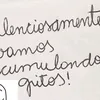 lenciosamente
vamos
cumulando
gritos!